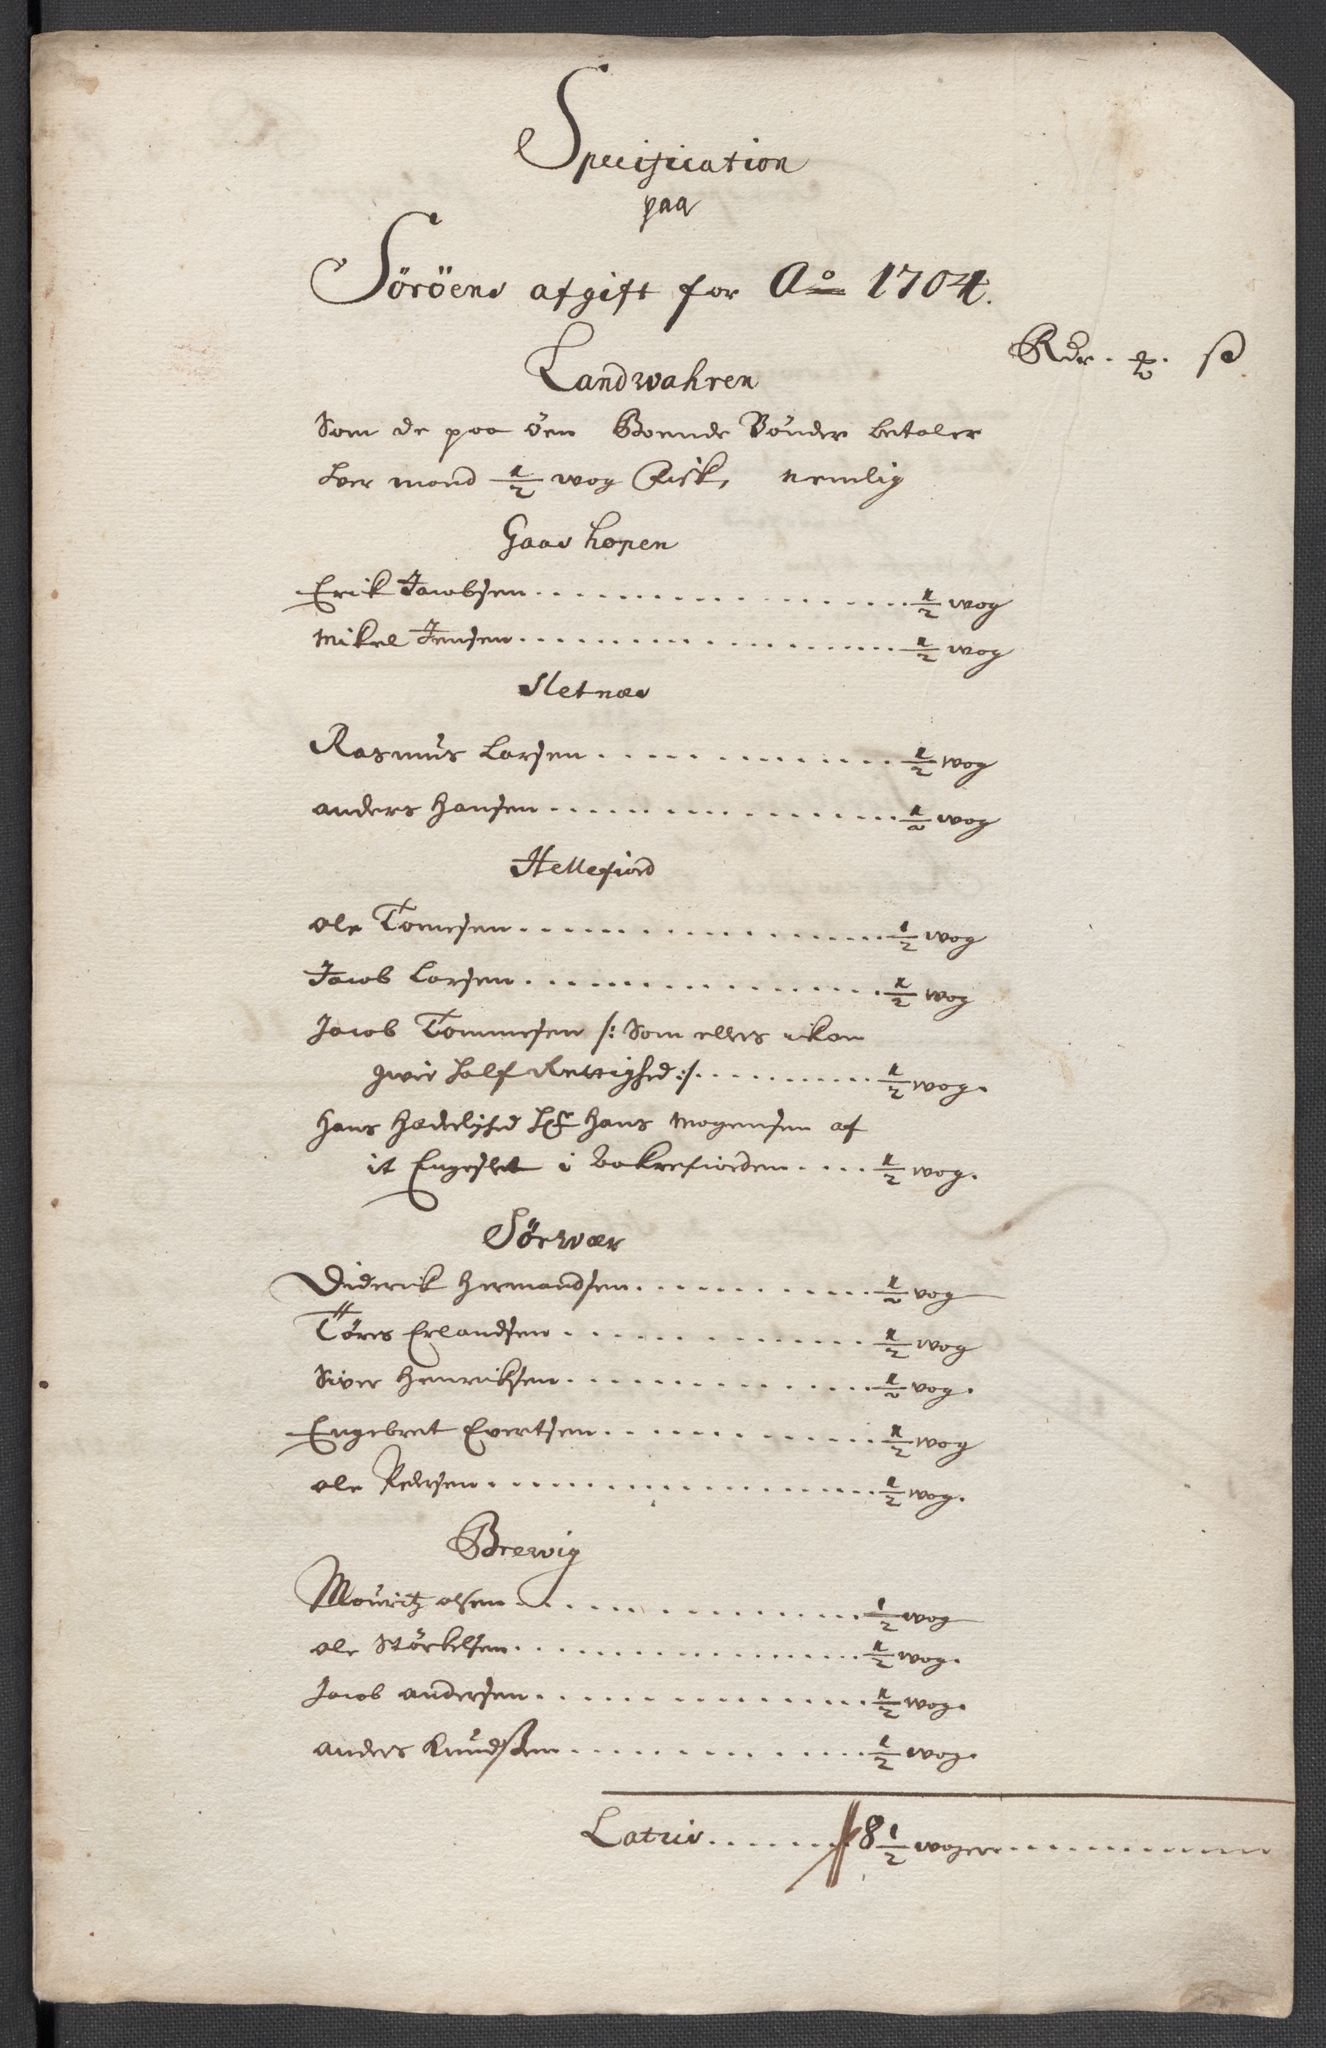 Specification
paa
Söröens afgift for Ao 1704.
Rdr. ß
Landwahren
Som de paa öen Boende Bönder betaler
hver mand 1/2 wog Fisk, nemlig
Gaas hopen
Erik Jacobsen 1/2 wog
Mikel Jensen 1/2 wog
Sletnæs
Rasmus Larsen 1/2 wog
anders Hansen 1/2 wog
Hellefiord
ole Tomesen 1/2 wog
Jacob Larsen 1/2 wog
Jacob Tommesen /: Som ellers ikon
gwer half Rettighed :/ 1/2 wog.
Hans Hans Mogensen af
it Engeslet i Bakrefiorden 1/2 wog.
Sörwær
Diderik Hermandsen 1/2 vog
Töres Erlandsen 1/2 wog
Siver Henriksen 1/2 vog.
Engebret Evertsen 1/2 wog
ole Pedersen 1/2 wog.
Brewig
Mouritz olsen 1/2 wog
ole Störkelsen 1/2 wog.
Jacob andersen 1/2 wog.
anders Knudssen 1/2 wog.
Latus 8 1/2 woger